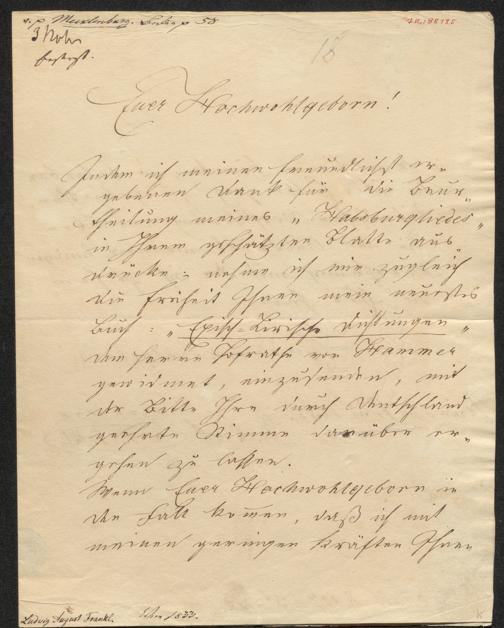 Euer Hochwohlgeborn!
Indem ich meinen freundlichst er-
gebenen Dank für die Beur-
theilung meines „Habsburgliedes"
in Ihrem geschätzten Blatte aus-
drücke: nehme ich mir zugleich
die Freiheit Ihnen mein neustes
Buch: „Episch-Lirische Dichtungen"
dem Herrn Hofrathe von Hammer
gewidmet, einzusenden, mit
der Bitte Ihre durch Deutschland
geehrte Stimme darüber er-
gehen zu lassen.
Wenn Euer Hochwohlgeborn in
den Fall kom̄en, daß ich mit
meinen geringen Kräften Ihnen
Ludwig August Frankl. 1833.